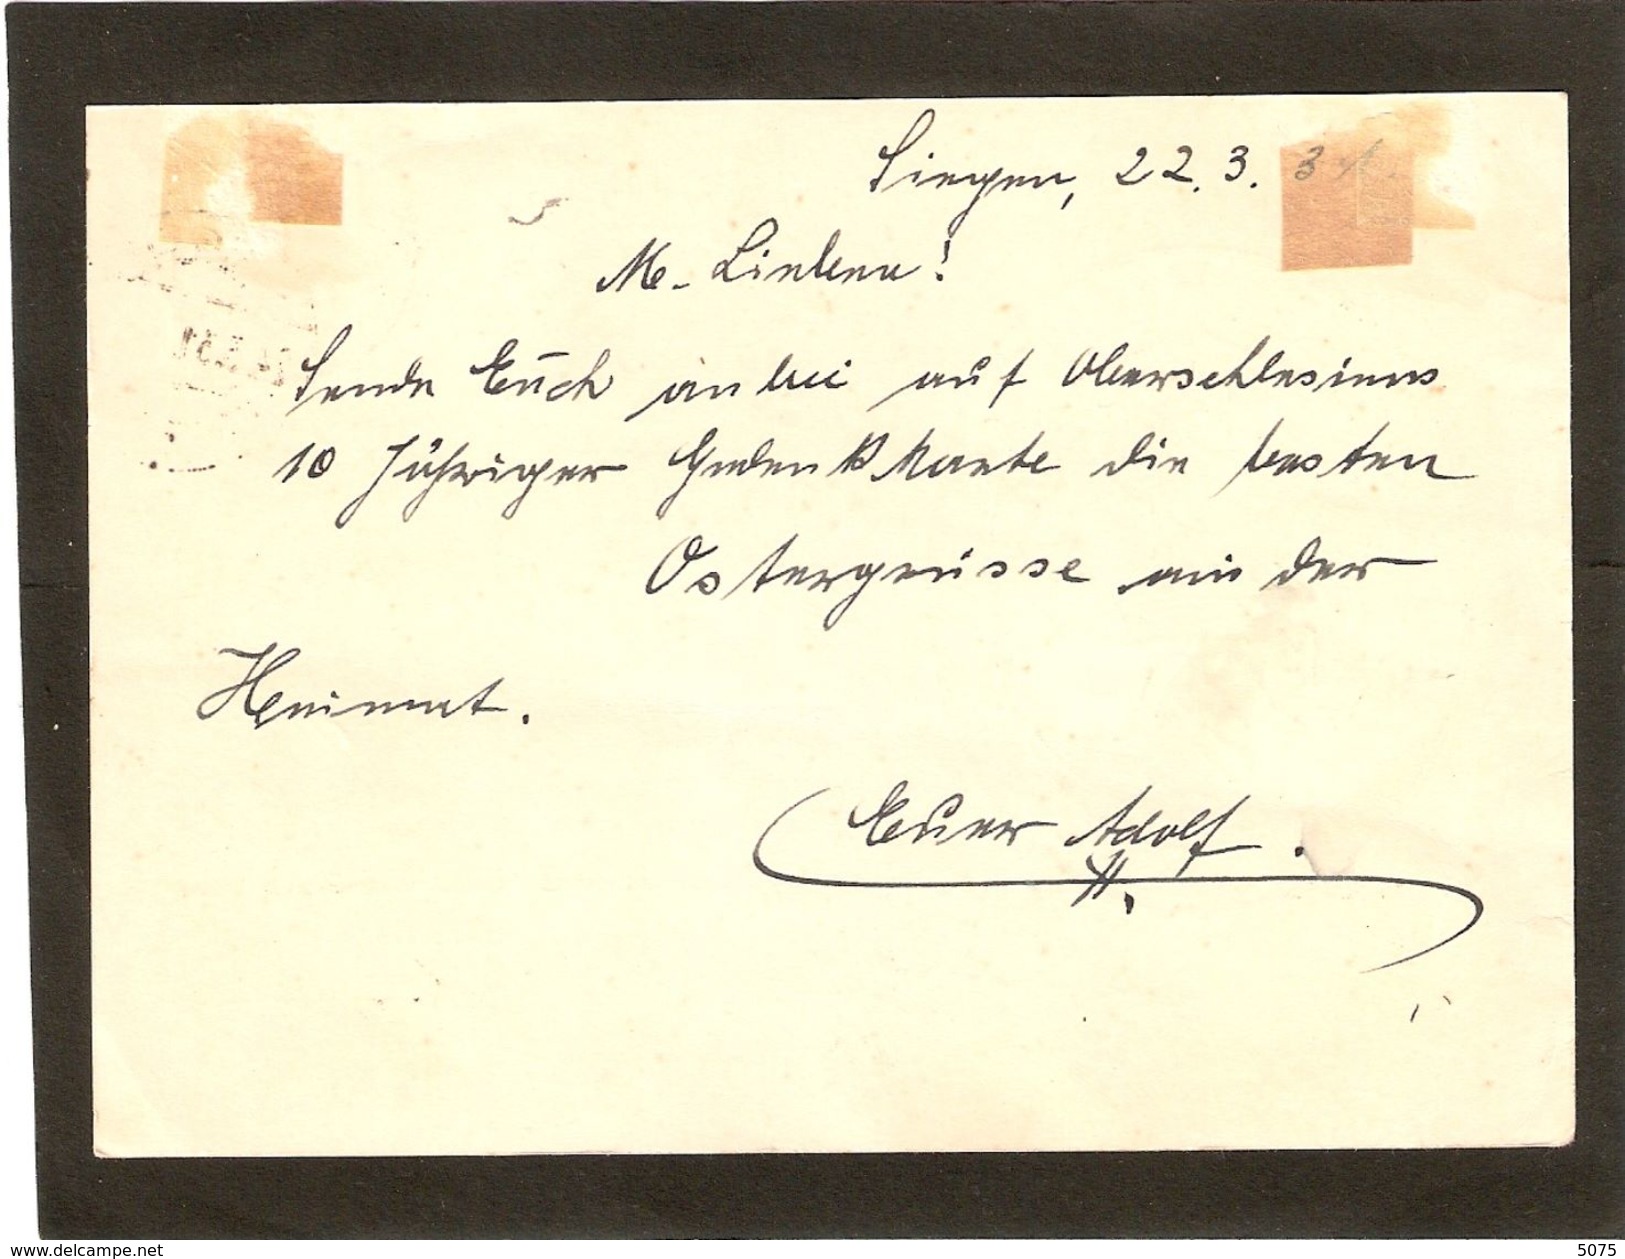 Siegen, 22.3.31.
M. Lieben!
Sende Euch anbei auf Oberschlesiens
10 Jähriger Gedenkkarte die besten
Ostergrüsse aus der
Heimat.
Euer Adolf.
www.delcampe.net
5075